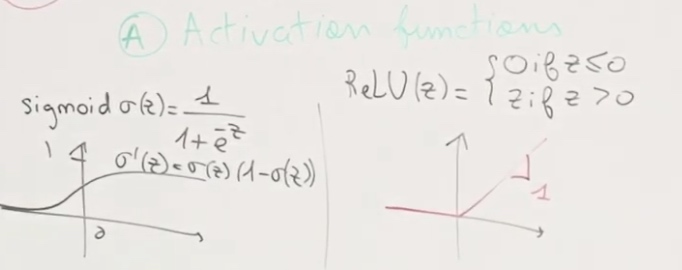 A Activation functions
sigmoid σ(z) = 1 / 1 + e^-z
1
σ'(z) = σ(z) (1 - σ(z))
0
ReLU(z) = { 0 if z ≤ 0
z if z > 0
1